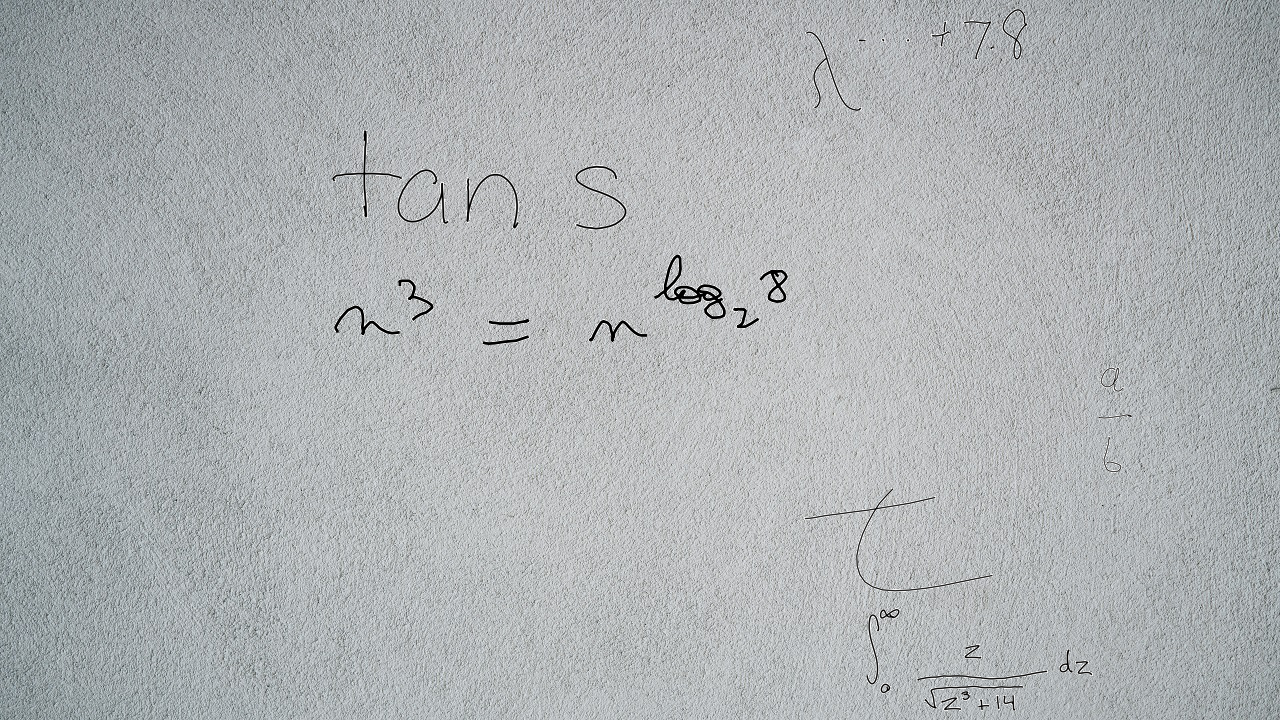 λ ... + 7.8
tan s
n^3 = n^{log_2 8}
a/b
t
∫_0^∞ z/√(z^3+14) dz